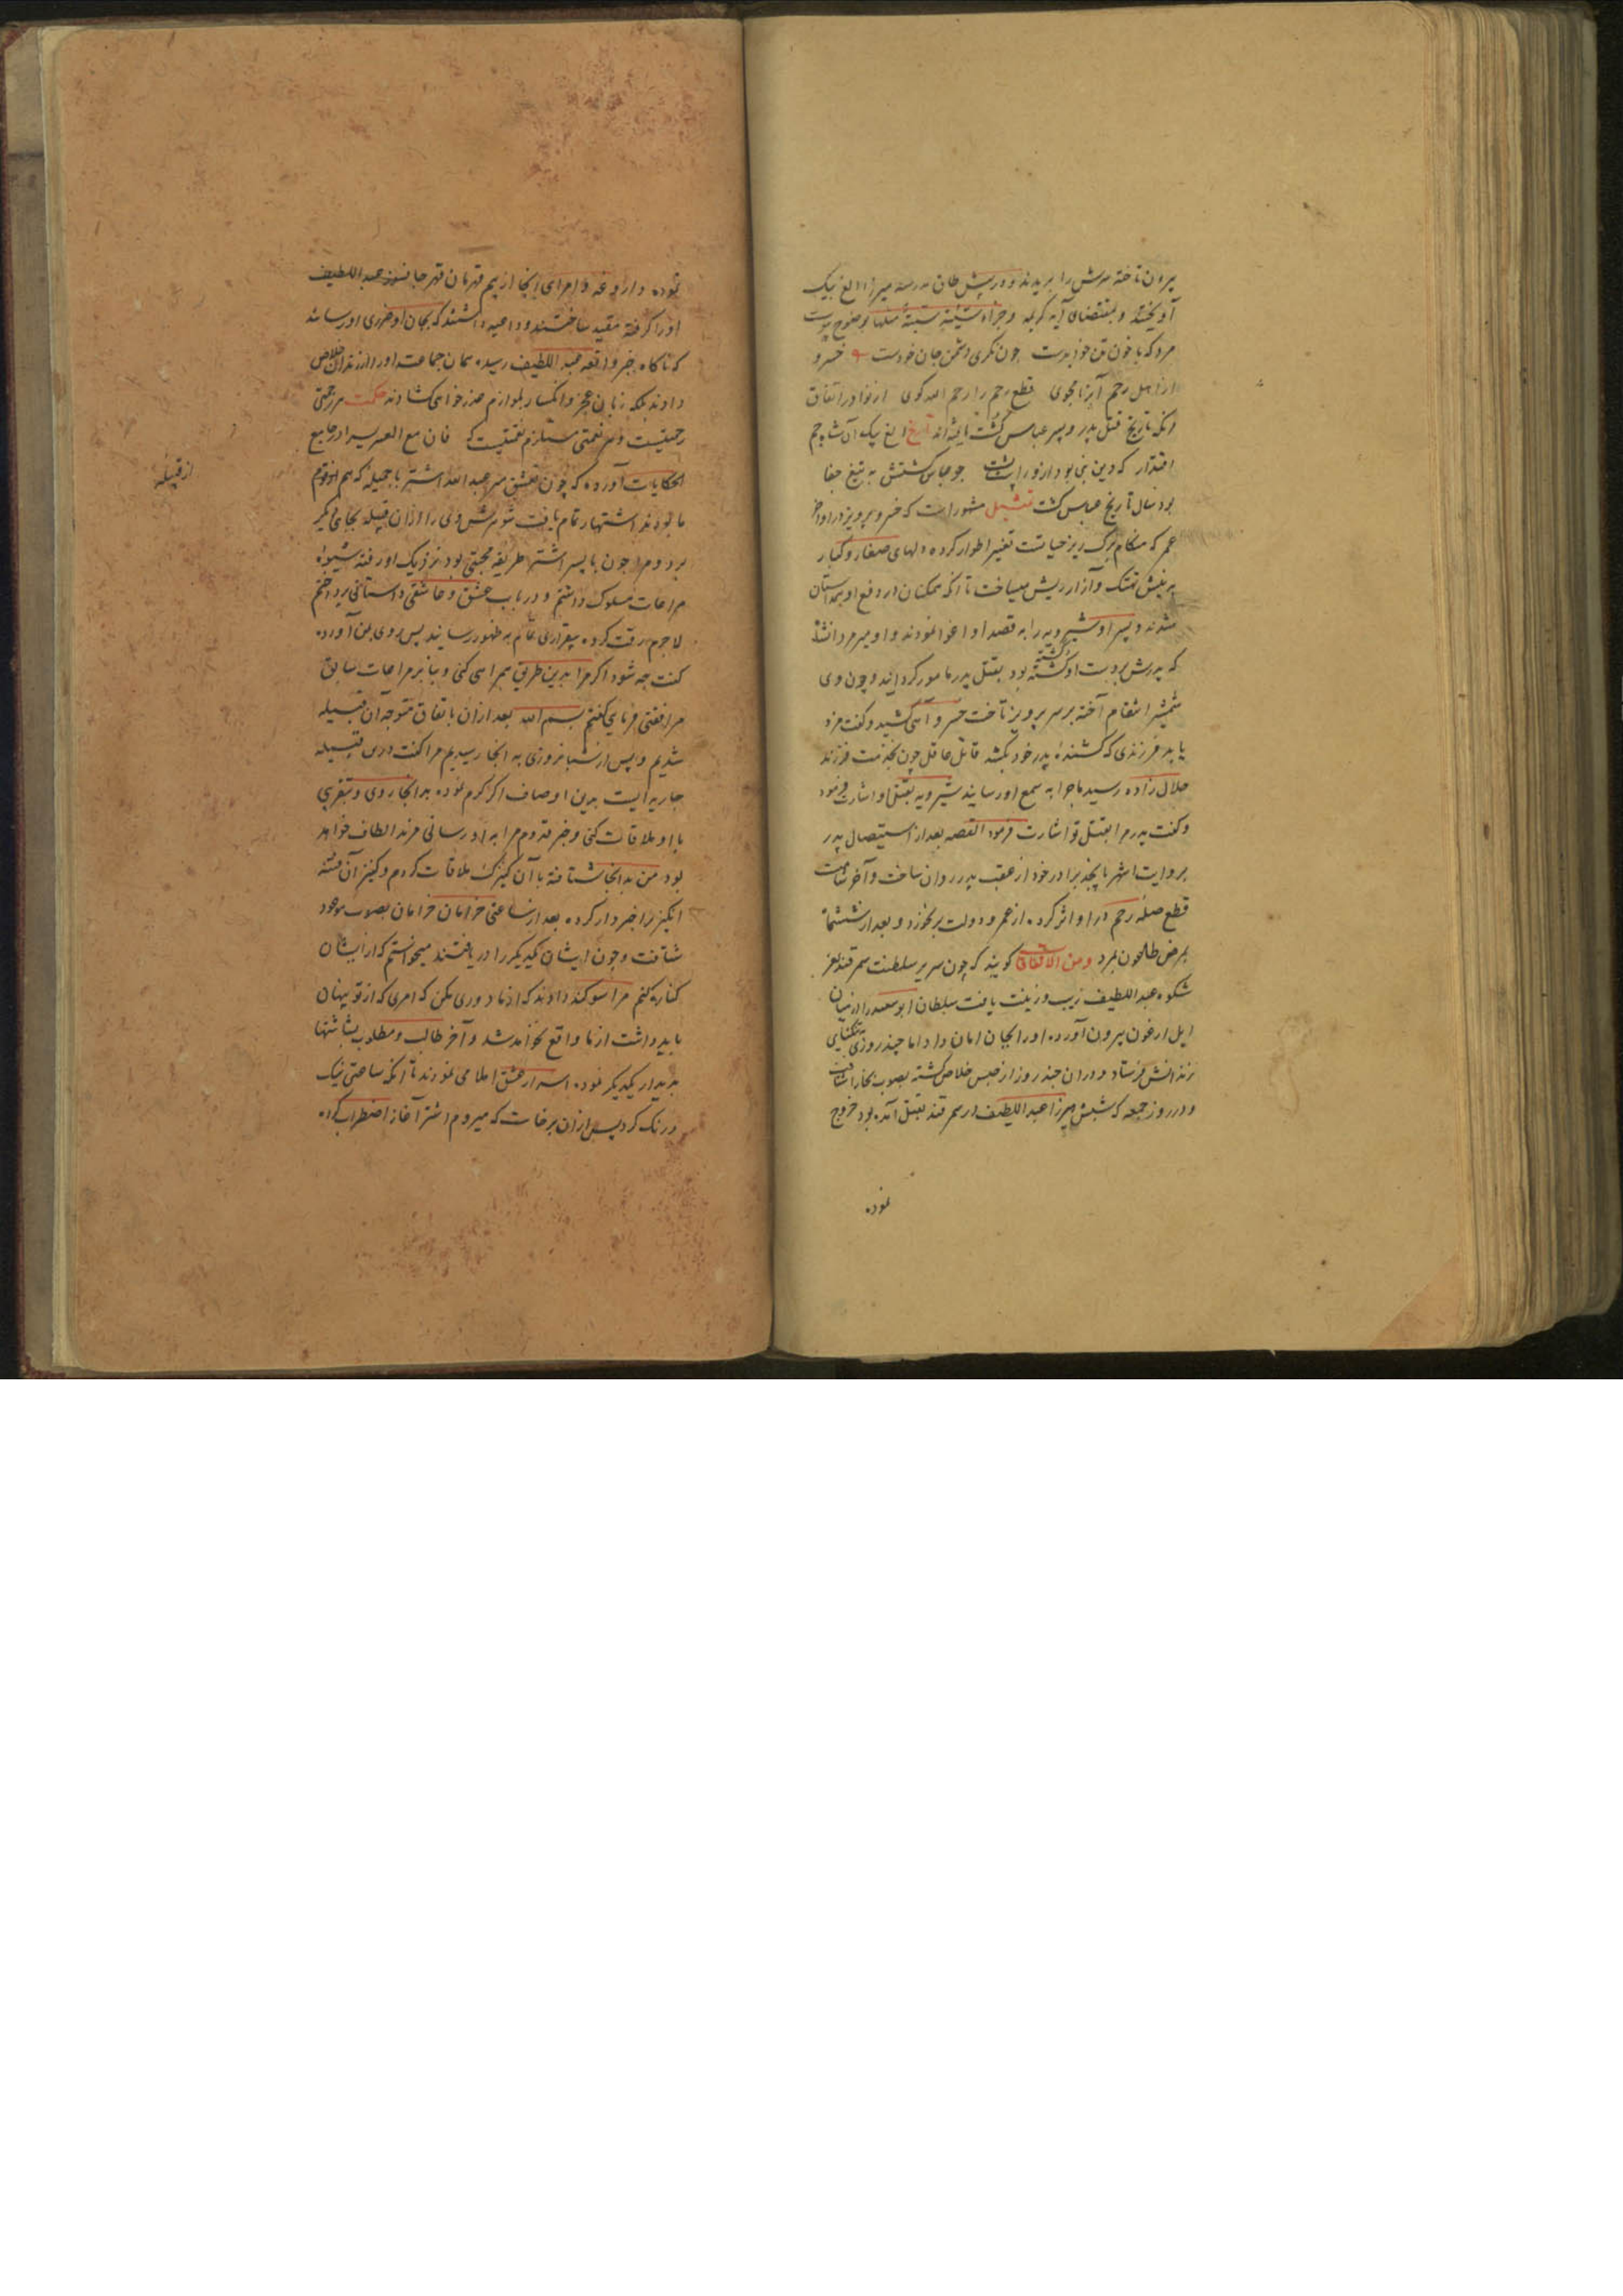 بیرون تاخته سرش را بریدند و در پیش طاق مدرسه میرزا الغ بیک
آویختند و بمقتضای آیه کریمه و جزاء سیئة سیئة مثلها بوضوح پیوست
مرد که با خون تن خواند چون نگری دشمن جان خودست خسرو
از اهل رحم آبرنا مجوی قطع رحم را رحم الله گوی از نوادر اتفاق
آنکه تاریخ قتل پدر و پسر عباس کشت یافته‌اند تاریخ الغ بیک آن شاه جم
اقتدار که دین نبی بود ازو راپشت چو عباس کشتش به تیغ جفا
بود سال تاریخ عباس کشت تمثیل مشهور است که خسرو پرویز در اواخر
عمر که هنگام برگ ریز حیاتست تغییر اطوار کرده دلهای صغار و کبار
به نیش تهتک و آزار ریش میساخت تا آنکه همگنان در دفع او همداستان
شدند و پسر او شیرویه را به قصد او اغوا نمودند و او میر مردانشاه
که پدرش بردست او کشته کشته بود بقتل پدر مامور گردانید و چون وی
شمشیر انتقام آخته بر سر پرویز تاخت خسرو آهی کشید و گفت مزد
یابد فرزندی که کشنده پدر خود بکشد قاتل عاقل چون بخدمت فرزند
حلال زاده رسید ماجرا به سمع او رسانید شیرویه بقتل او اشارت فرمود
و گفت پدرم بقتل تو اشارت فرمود القصه بعد از استیصال پدر
بروایت اشهر با پنجد برادر خود از عقب پدر روان ساخت و آخر شامت
قطع صله رحم در او اثر کرده از عمر و دولت بر نخورد و بعد از ششماه
بمرض طاعون بمرد ومن الاتفاق گویند که چون سریر سلطنت سمرقند بفر
شکوه عبد اللطیف زیب و زینت یافت سلطان ابو سعید را از میان
ایل ارغون بیرون آورده او را بجان امان داد اما چند روزی بتنگنای
زندانش فرستاد و دران چند روز از حبس خلاص گشته بصوب بخارا شتافت
و در روز جمعه که شبش میرزا عبد اللطیف در سمرقند بقتل آمده بود خروج
نموده
نموده داروغه و امرای آنجا از بیم قهرمان قهر جانسوز عبد اللطیف
او را گرفته مقید ساختند و داعیه داشتند که بجان او ضرری اور سانند
که ناگاه خبر واقعه عبد اللطیف رسیده همان جماعت او را از زندان خلاص
دادند بلکه زبان عجز و انکسار بلوازم عذر خواهی گشادند حکمت هر زحمتی
رحمتیست و هر نعمتی مستلزم نقمتیست که فان مع العسر یسرا در جامع
الحکایات آورده که چون تعشق میر عبد الله اشتر با جمیله که هم از قوم
ما بودند اشتهار تمام یافت شوهرش وی را از آن قبیله بجای دیگر
برد و مرا چون با پسر اشتر طریقه محبتی بود نزدیک او رفته شیوه
مراعات مسلوک داشتم و در باب عشق و عاشقی داستانی پرداختم
لاجرم رقت کرده بیقراری تمام به ظهور رسانید پس روی بمن آورده
گفت چه شود اگر مرا بدین طریق همراهی کنی و بنا بر مراعات سابق
مرافقتی فرمای گفتم بسم الله بعد ازان باتفاق متوجه آن قبیله
شدیم و پس از شبانروزی به آنجا رسیدیم مرا گفت درین قبیله
جاریه ایست بدین اوصاف اگر کرم نموده بدانجا روی و بتقریبی
با او ملاقات کنی و خبر قدوم مرا به او رسانی مزید الطاف خواهد
بود من بدانجا شتافته با آن کنیزک ملاقات کردم و کنیز آن فتنه
انگیز را خبردار کرده بعد از ساعتی خرامان خرامان بصوب موعود
شتافت و چون ایشان یکدیگر را دریافتند میخواستم که از ایشان
کناره کنم مرا سوگند دادند که از ما دوری مکن که امری که از تو پنهان
باید داشت از ما واقع نخواهد شد و آخر طالب و مطلوب بشاشتها
بدیدار یکدیگر نموده اسرار عشق املا می نمودند تا آنکه ساعتی نیک
درنگ کرد پس ازان برخاست که میروم اشتر آغاز اضطراب کرده
از قبیله